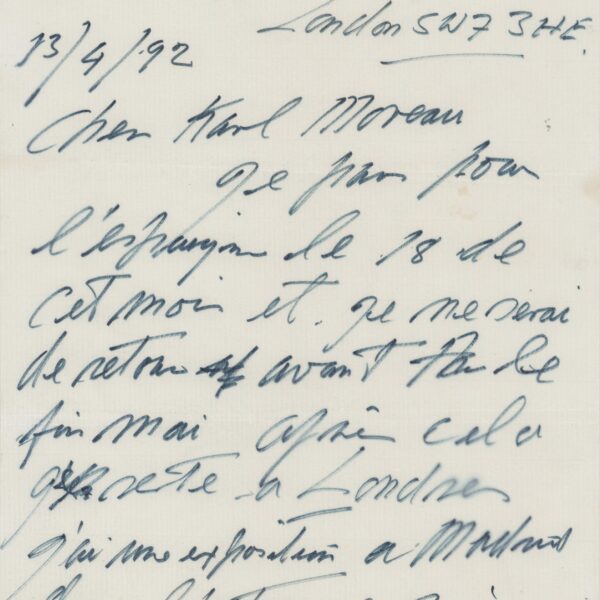 London SW7 3HE.
13/4/92
Cher Karl Moreau
Je pars pour
l'espagne le 18 de
cet mois et je ne serai
de retour avant le
fin mai après cela
reste a Londres
j'ai une exposition a Madrid